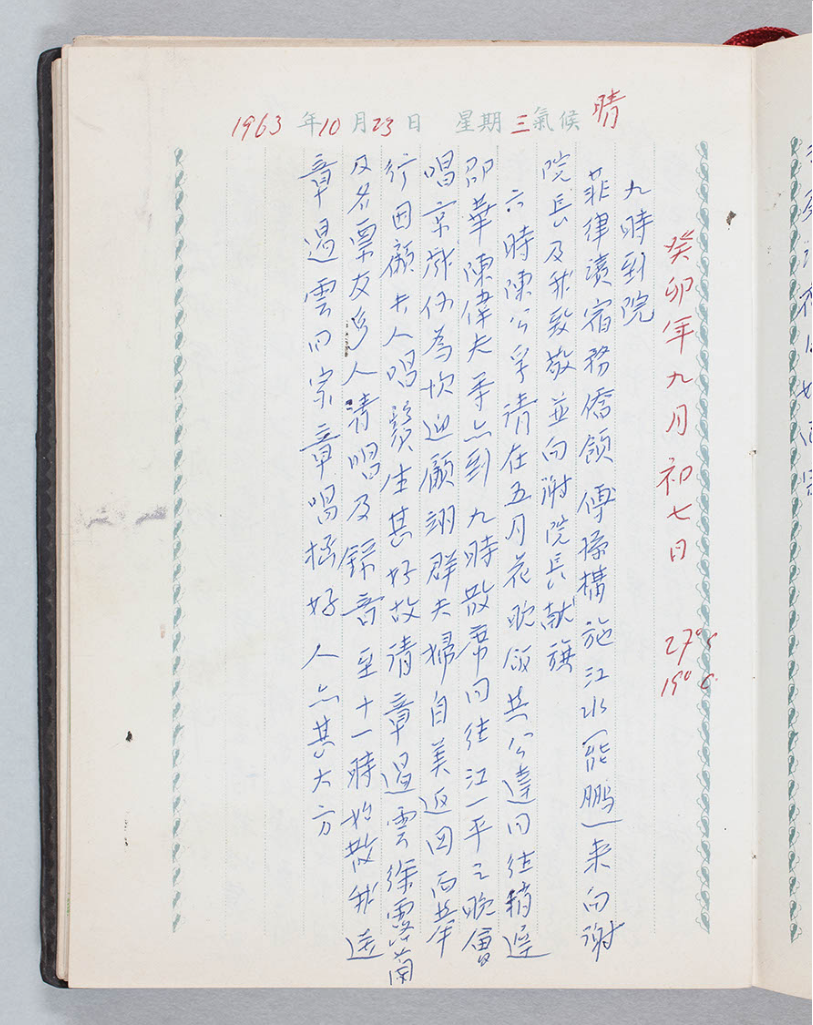 1963年10月23日 星期三氣候 晴
癸卯年九月初七日 27°C
19°C
九時到院
菲律濱宿務僑領傅孫構施江水熊鵬來向謝
院長及我致敬並向謝院長獻旗
六時陳公孚請在五月花晚飯共公達同往稍遲
邵華陳偉夫等亦到九時散席同往江一平之晚會
唱京戲仍為歡迎顧翊群夫婦自美返國而舉
行因顧夫人唱鬚生甚好故請章遏雲徐露蘭
及各票友多人清唱及錄音至十一時始散我送
章遏雲回家章唱極好人亦甚大方